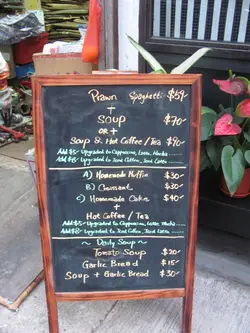 Prawn Spaghetti $59
+
Soup $70
OR +
Soup & Hot Coffee / Tea $90
Add $5 - Upgraded to Cappuccino, Latte, Mocha
Add $8 - Upgraded to Iced Coffee, Iced Latte
A) Homemade Muffin $30
B) Croissant $30
C) Homemade Cake $40
+
Hot Coffee / Tea
Add $5 - Upgraded to Cappuccino, Latte, Mocha
Add $8 - Upgraded to Iced Coffee, Iced Latte
~ Daily Soup ~
Tomato Soup $20
Garlic Bread $15
Soup + Garlic Bread $30